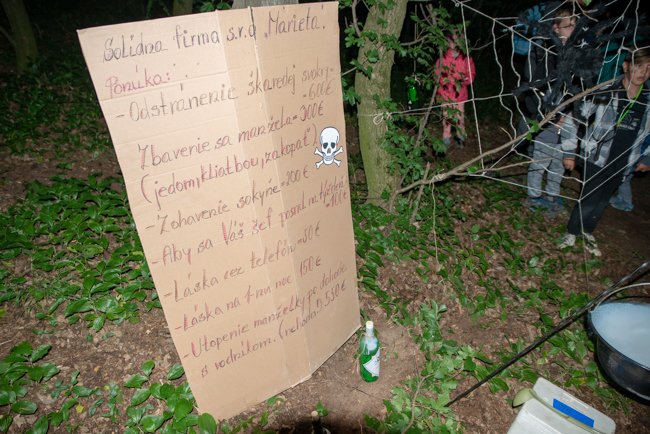 Solídna firma s.r.o „Marieta".
Ponúka:
- Odstránenie škaredej svokry
= 600€
Zbavenie sa manžela = 300€
(jedom, kliatbou, zakopať)
- Zohavenie sokyne = 200€
- Aby sa Váš šéf posral na týždeň
= 100€
- Láska cez telefón = 50€
- Láska na 1-nu noc 150€
- Utopenie manželky po dohode
s vodníkom. (nehoda) 530€